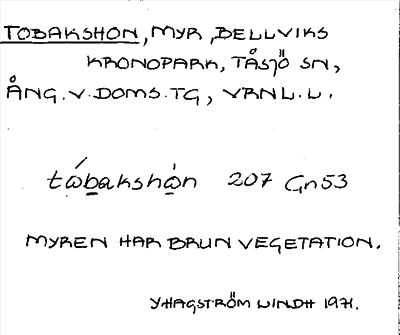 TOBAKSHON, MYR, BELLVIKS
KRONOPARK, TÅSJÖ SN,
ÅNG. V. DOMS. TG, VRNL. L.
tωbakshωn 207 Gn53
MYREN HAR BRUN VEGETATION.
YHAGSTRÖM LINDH 1971.